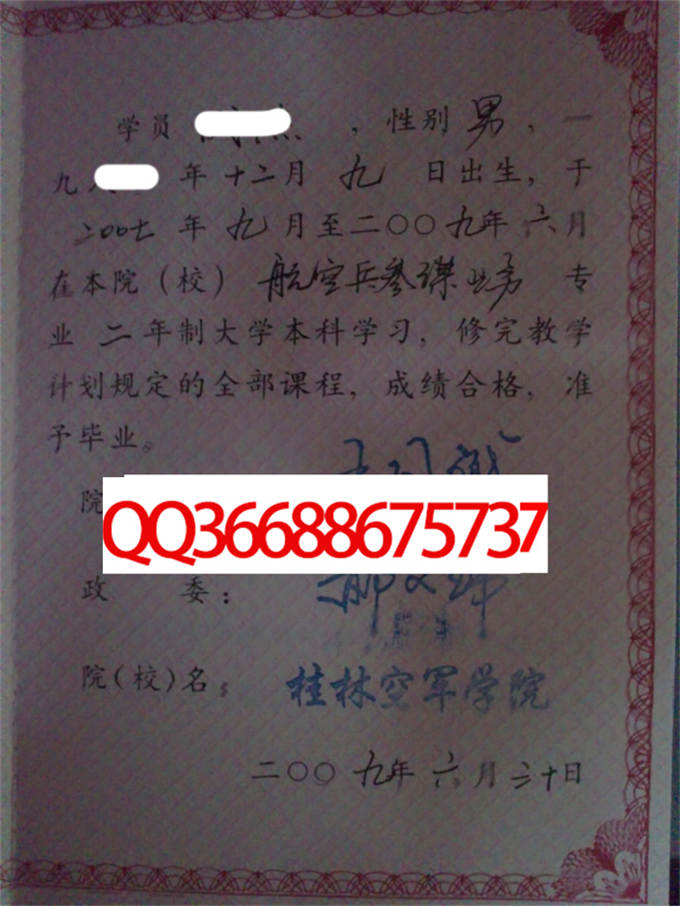 学员 ，性别 男，一
九 年 十二月 九 日出生，于
二00七 年 九 月至二〇〇九年 六月
在本院（校） 航空兵参谋业务 专
业 二 年制大学本科学习，修完教学
计划规定的全部课程，成绩合格，准
予毕业。
院
QQ36688675737
政 委：
院（校）名：
桂林空军学院
二〇〇九年 六月三十日